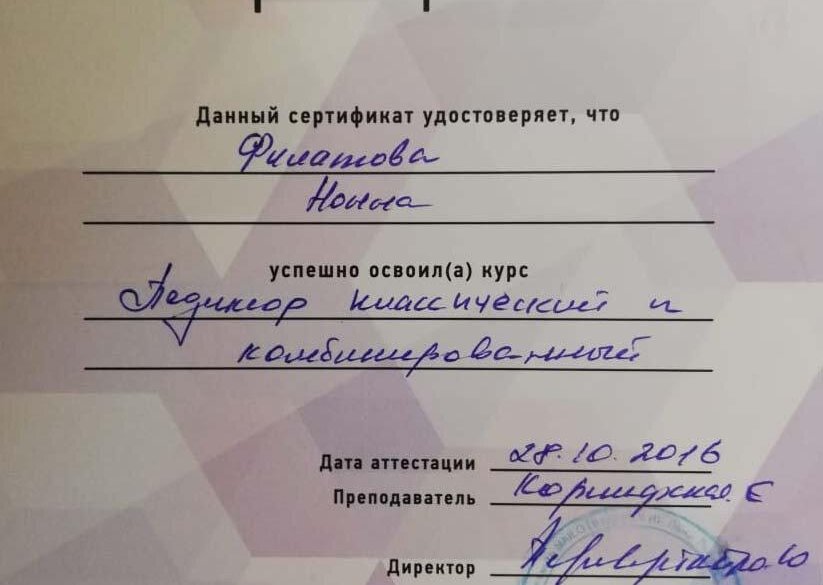 Данный сертификат удостоверяет, что
Филатова
Нонна
успешно освоил(а) курс
Педикюр классический и
комбинированный
Дата аттестации 28.10.2016
Преподаватель Е
Директор